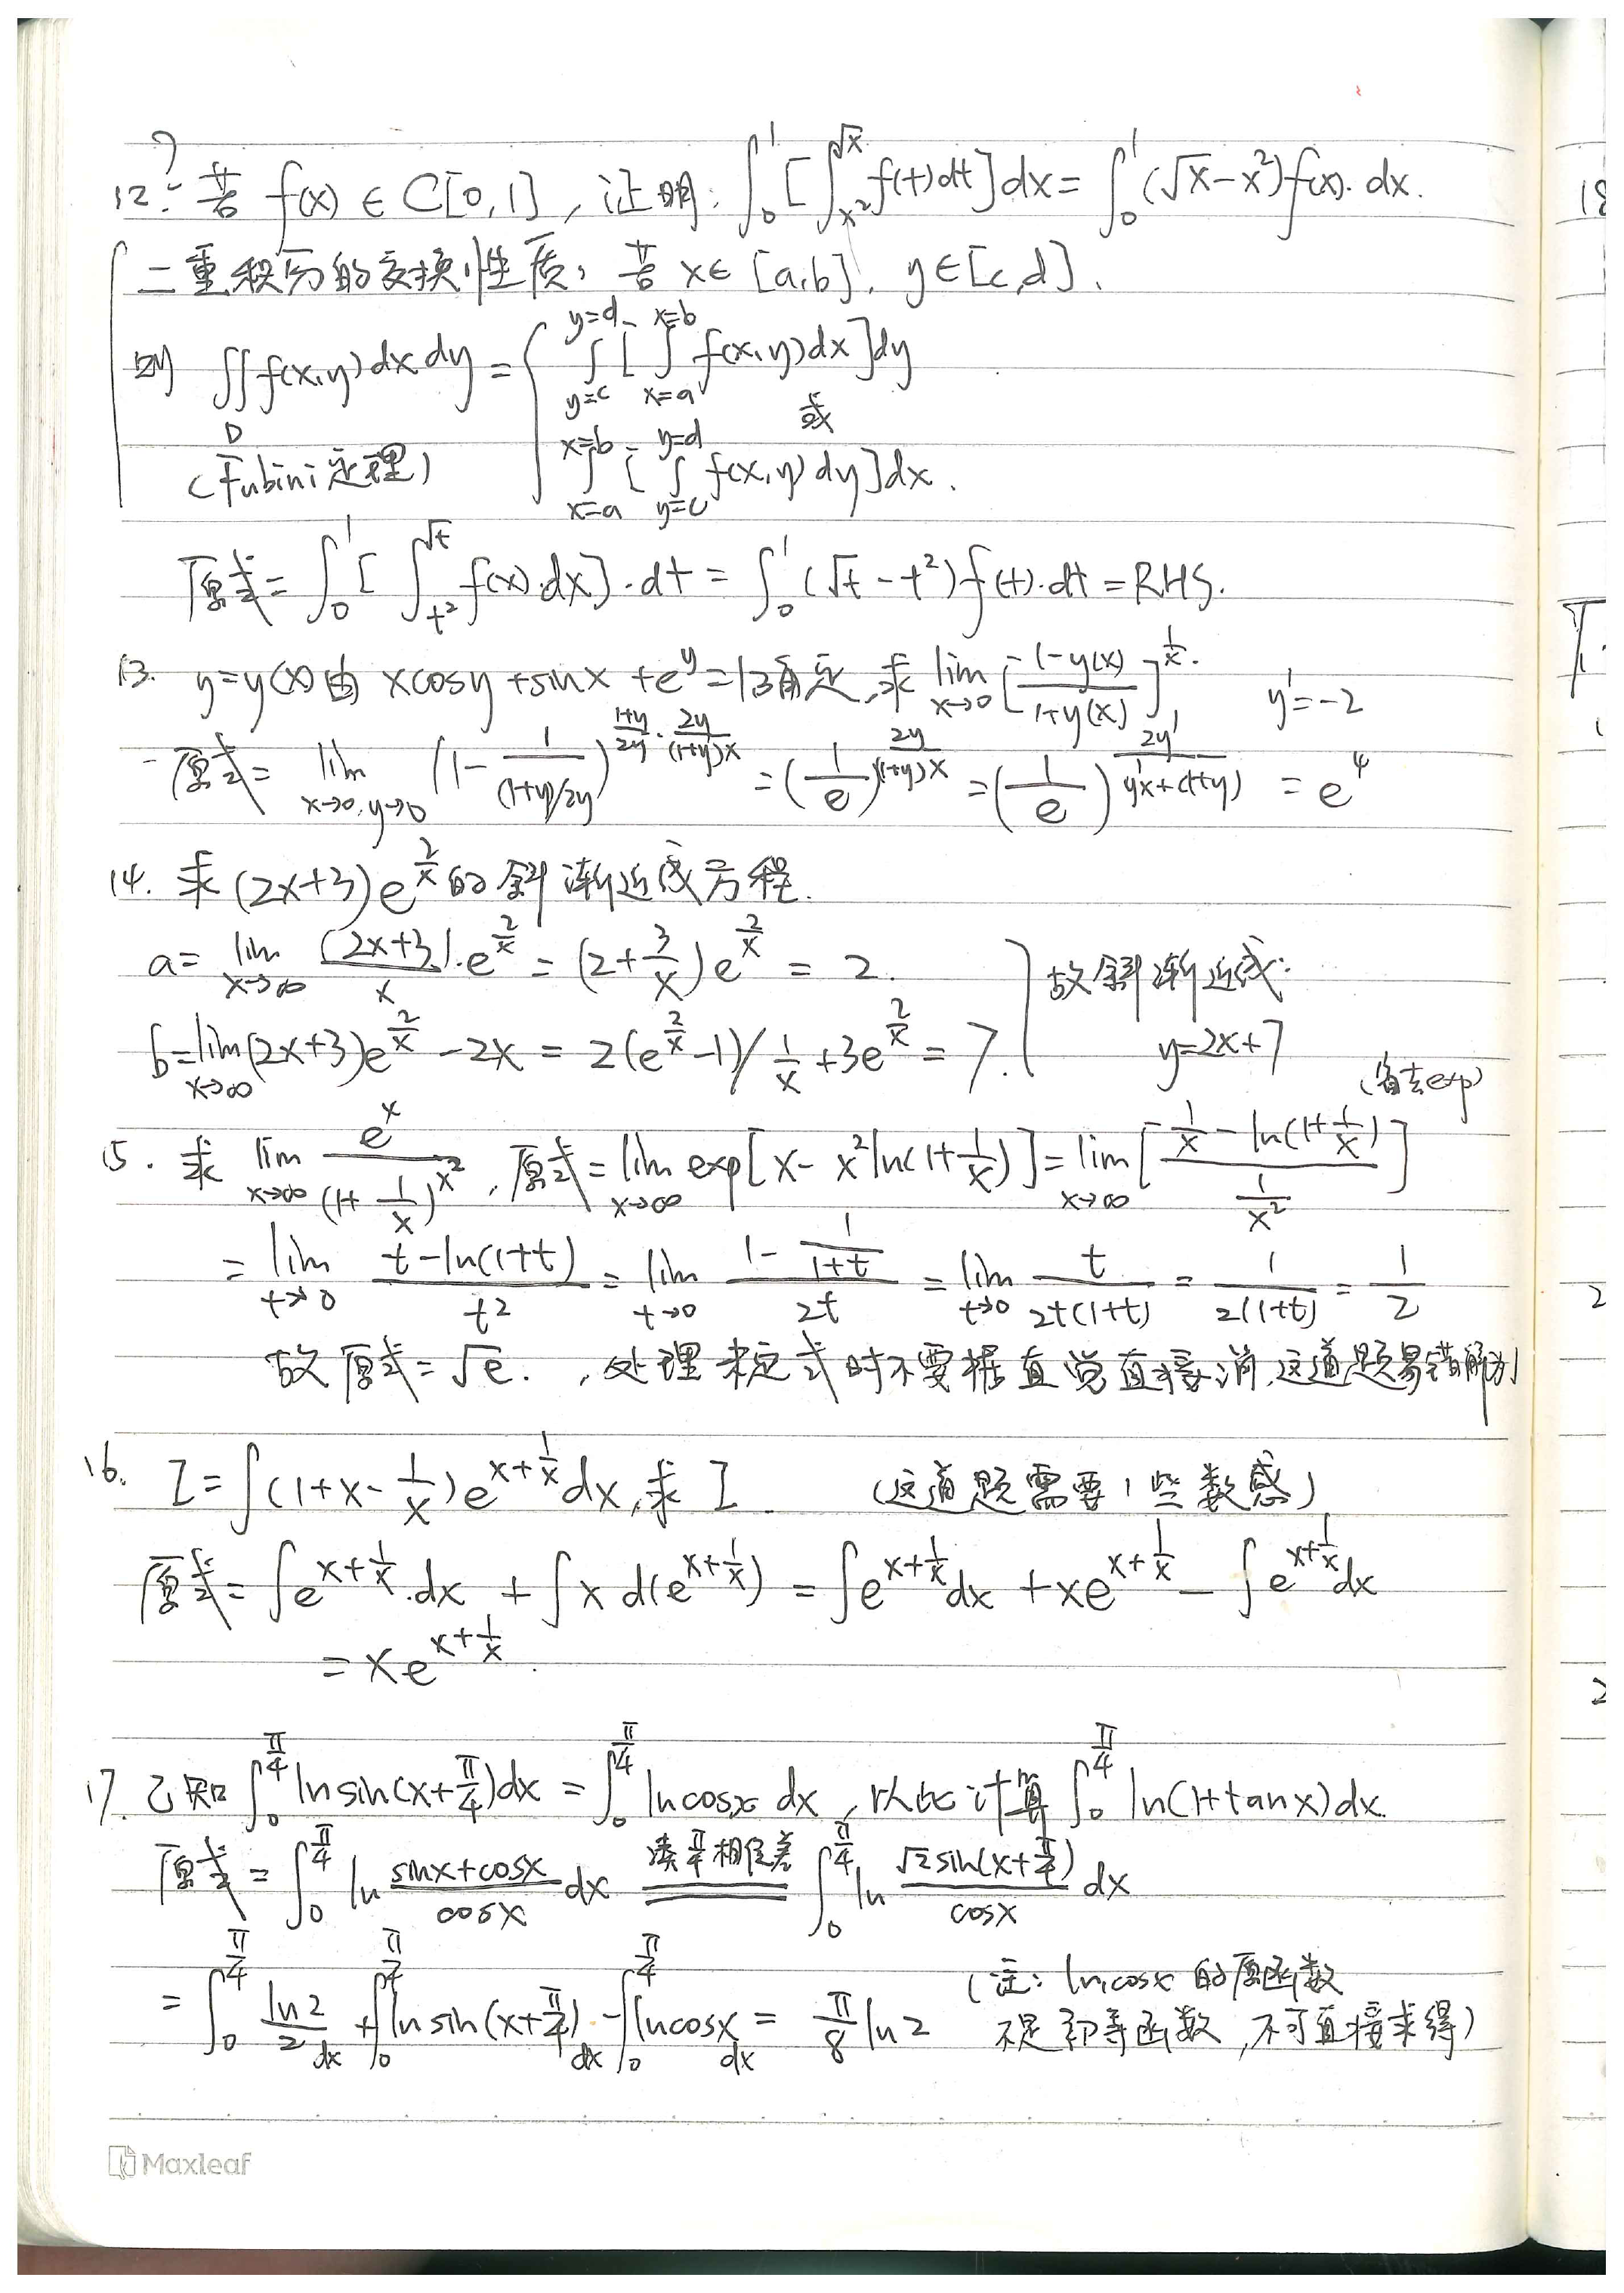 12? 若 f(x) ∈ C[0,1], 证明: ∫_0^1 [∫_{x²}^{√x} f(t)dt]dx = ∫_0^1 (√x-x²)f(x)·dx.
二重积分的交换性质: 若 x∈[a,b], y∈[c,d].
则 ∬_D f(x,y)dxdy = { ∫_{y=c}^{y=d} [∫_{x=a}^{x=b} f(x,y)dx]dy
或
(Fubini定理) ∫_{x=a}^{x=b} [∫_{y=c}^{y=d} f(x,y)dy]dx.
原式 = ∫_0^1 [∫_{t²}^{√t} f(x)·dx]·dt = ∫_0^1 (√t-t²)f(t)·dt = RHS.
13. y=y(x)由 xcosy+sinx+e^y=1确定,求 lim_{x→0} [(1-y(x))/(1+y(x))]^{1/x}. y'=-2
原式= lim_{x→0,y→0} (1-1/((1+y)/2y))^{(1+y)/2y · 2y/((1+y)x)} = (1/e)^{2y/((1+y)x)} = (1/e)^{2y'/(y'x+(1+y))} = e^4
14. 求(2x+3)e^{2/x}的斜渐近线方程.
a= lim_{x→∞} (2x+3)·e^{2/x}/x = (2+3/x)e^{2/x} = 2.
b=lim_{x→∞}(2x+3)e^{2/x}-2x = 2(e^{2/x}-1)/(1/x)+3e^{2/x} = 7. } 故斜渐近线: y=2x+7
(省去exp)
15. 求 lim_{x→∞} e^x/(1+1/x)^{x²}, 原式= lim_{x→∞} exp[x-x²ln(1+1/x)] = lim_{x→∞} [(1/x-ln(1+1/x))/(1/x²)]
= lim_{t→0} (t-ln(1+t))/t² = lim_{t→0} (1-1/(1+t))/2t = lim_{t→0} t/(2t(1+t)) = 1/(2(1+t)) = 1/2
故原式=√e. ,处理未定式时不要据直觉直接消,这道题易错解为1
16. I=∫(1+x-1/x)e^{x+1/x}dx,求 I. (这道题需要一些数感)
原式= ∫e^{x+1/x}·dx + ∫x d(e^{x+1/x}) = ∫e^{x+1/x}dx + xe^{x+1/x} - ∫e^{x+1/x}dx
= xe^{x+1/x}.
17. 已知 ∫_0^{π/4} ln sin(x+π/4)dx = ∫_0^{π/4} lncosx dx, 以此计算 ∫_0^{π/4} ln(1+tanx)dx.
原式 = ∫_0^{π/4} ln (sinx+cosx)/cosx dx 凑π/4相位差 = ∫_0^{π/4} ln √2sin(x+π/4)/cosx dx
= ∫_0^{π/4} ln2/2 dx + ∫_0^{π/4} ln sin(x+π/4)dx - ∫_0^{π/4} lncosx dx = π/8 ln2 (注: lncosx 的原函数
不是初等函数,不可直接求得)
Maxleaf